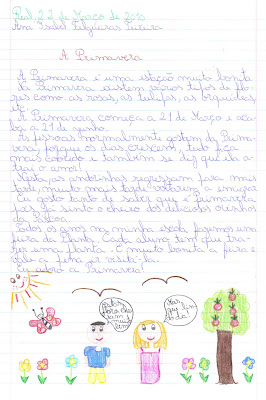 Real, 22 de Março de 2010
Ana Isabel Felgueiras Teixeira
A Primavera
A Primavera é uma estação muito bonita
da Primavera existem vários tipos de flo-
res como: as rosas, as tulipas, as orquídeas,
etc.
A Primavera começa a 21 de Março e aca-
ba a 21 de Junho.
As pessoas normalmente gostam da Prima-
vera, porque os dias crescem, tudo fica
mais colorido e também se diz que ela a-
trai o amor!
Nesta as andorinhas regressam para mais
tarde, muito mais tarde voltarem a emigrar.
Eu gosto tanto de saber que é Primavera
pois já sinto o cheiro dos deliciosos ovinhos
da Páscoa.
Todos os anos na minha escola fazemos uma
feira da planta. Cada aluno tem que tra-
zer uma planta. É muito bonita a feira e
vale a pena ir visitá-la.
Eu adoro a Primavera!